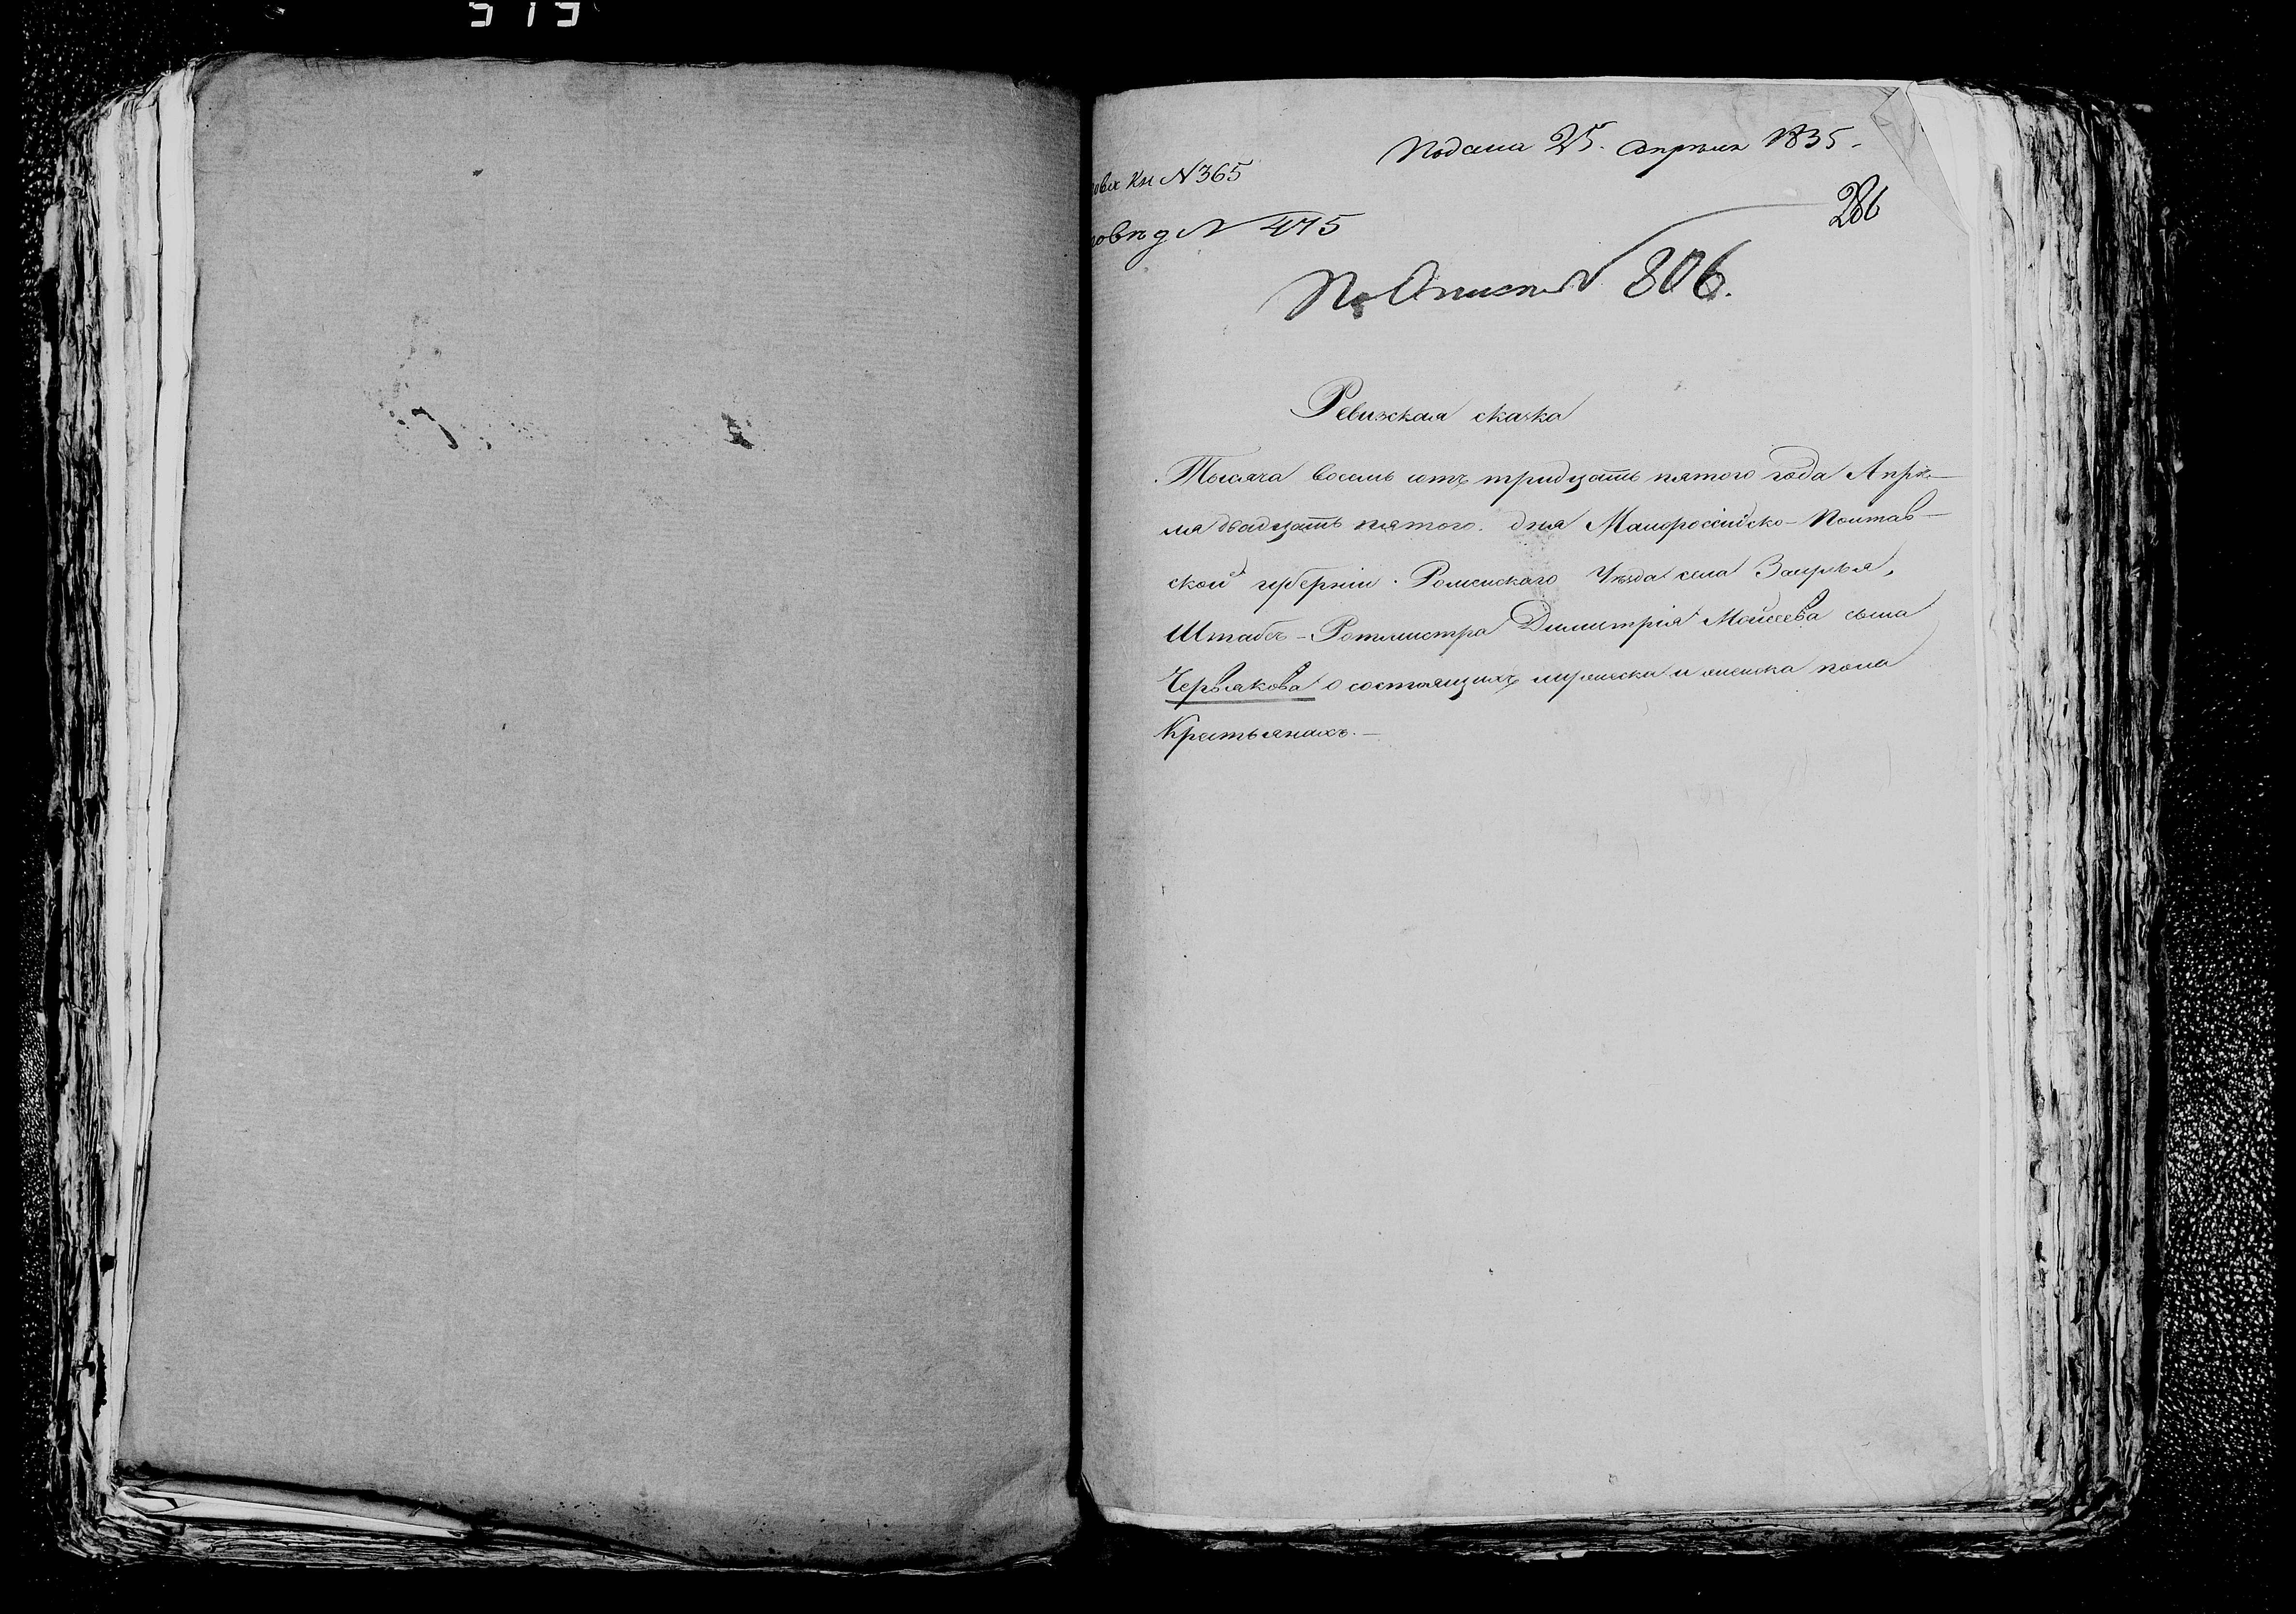 Подана 25. Апреля 1835.
Кн № 365
286
№ 475
По Описи № 806.
Ревизская сказка
Тысяча восемь сотъ тридцать пятого года Апрѣ-
ля двадцать пятого. дня Малороссійско-Полтав-
ской губерніи. Роменскаго Уѣзда села
Штабъ-Ротмистра Димитрія Мойсеева сына
Червякова о состоящихъ мужеска и женска пола
Крестьянахъ.-